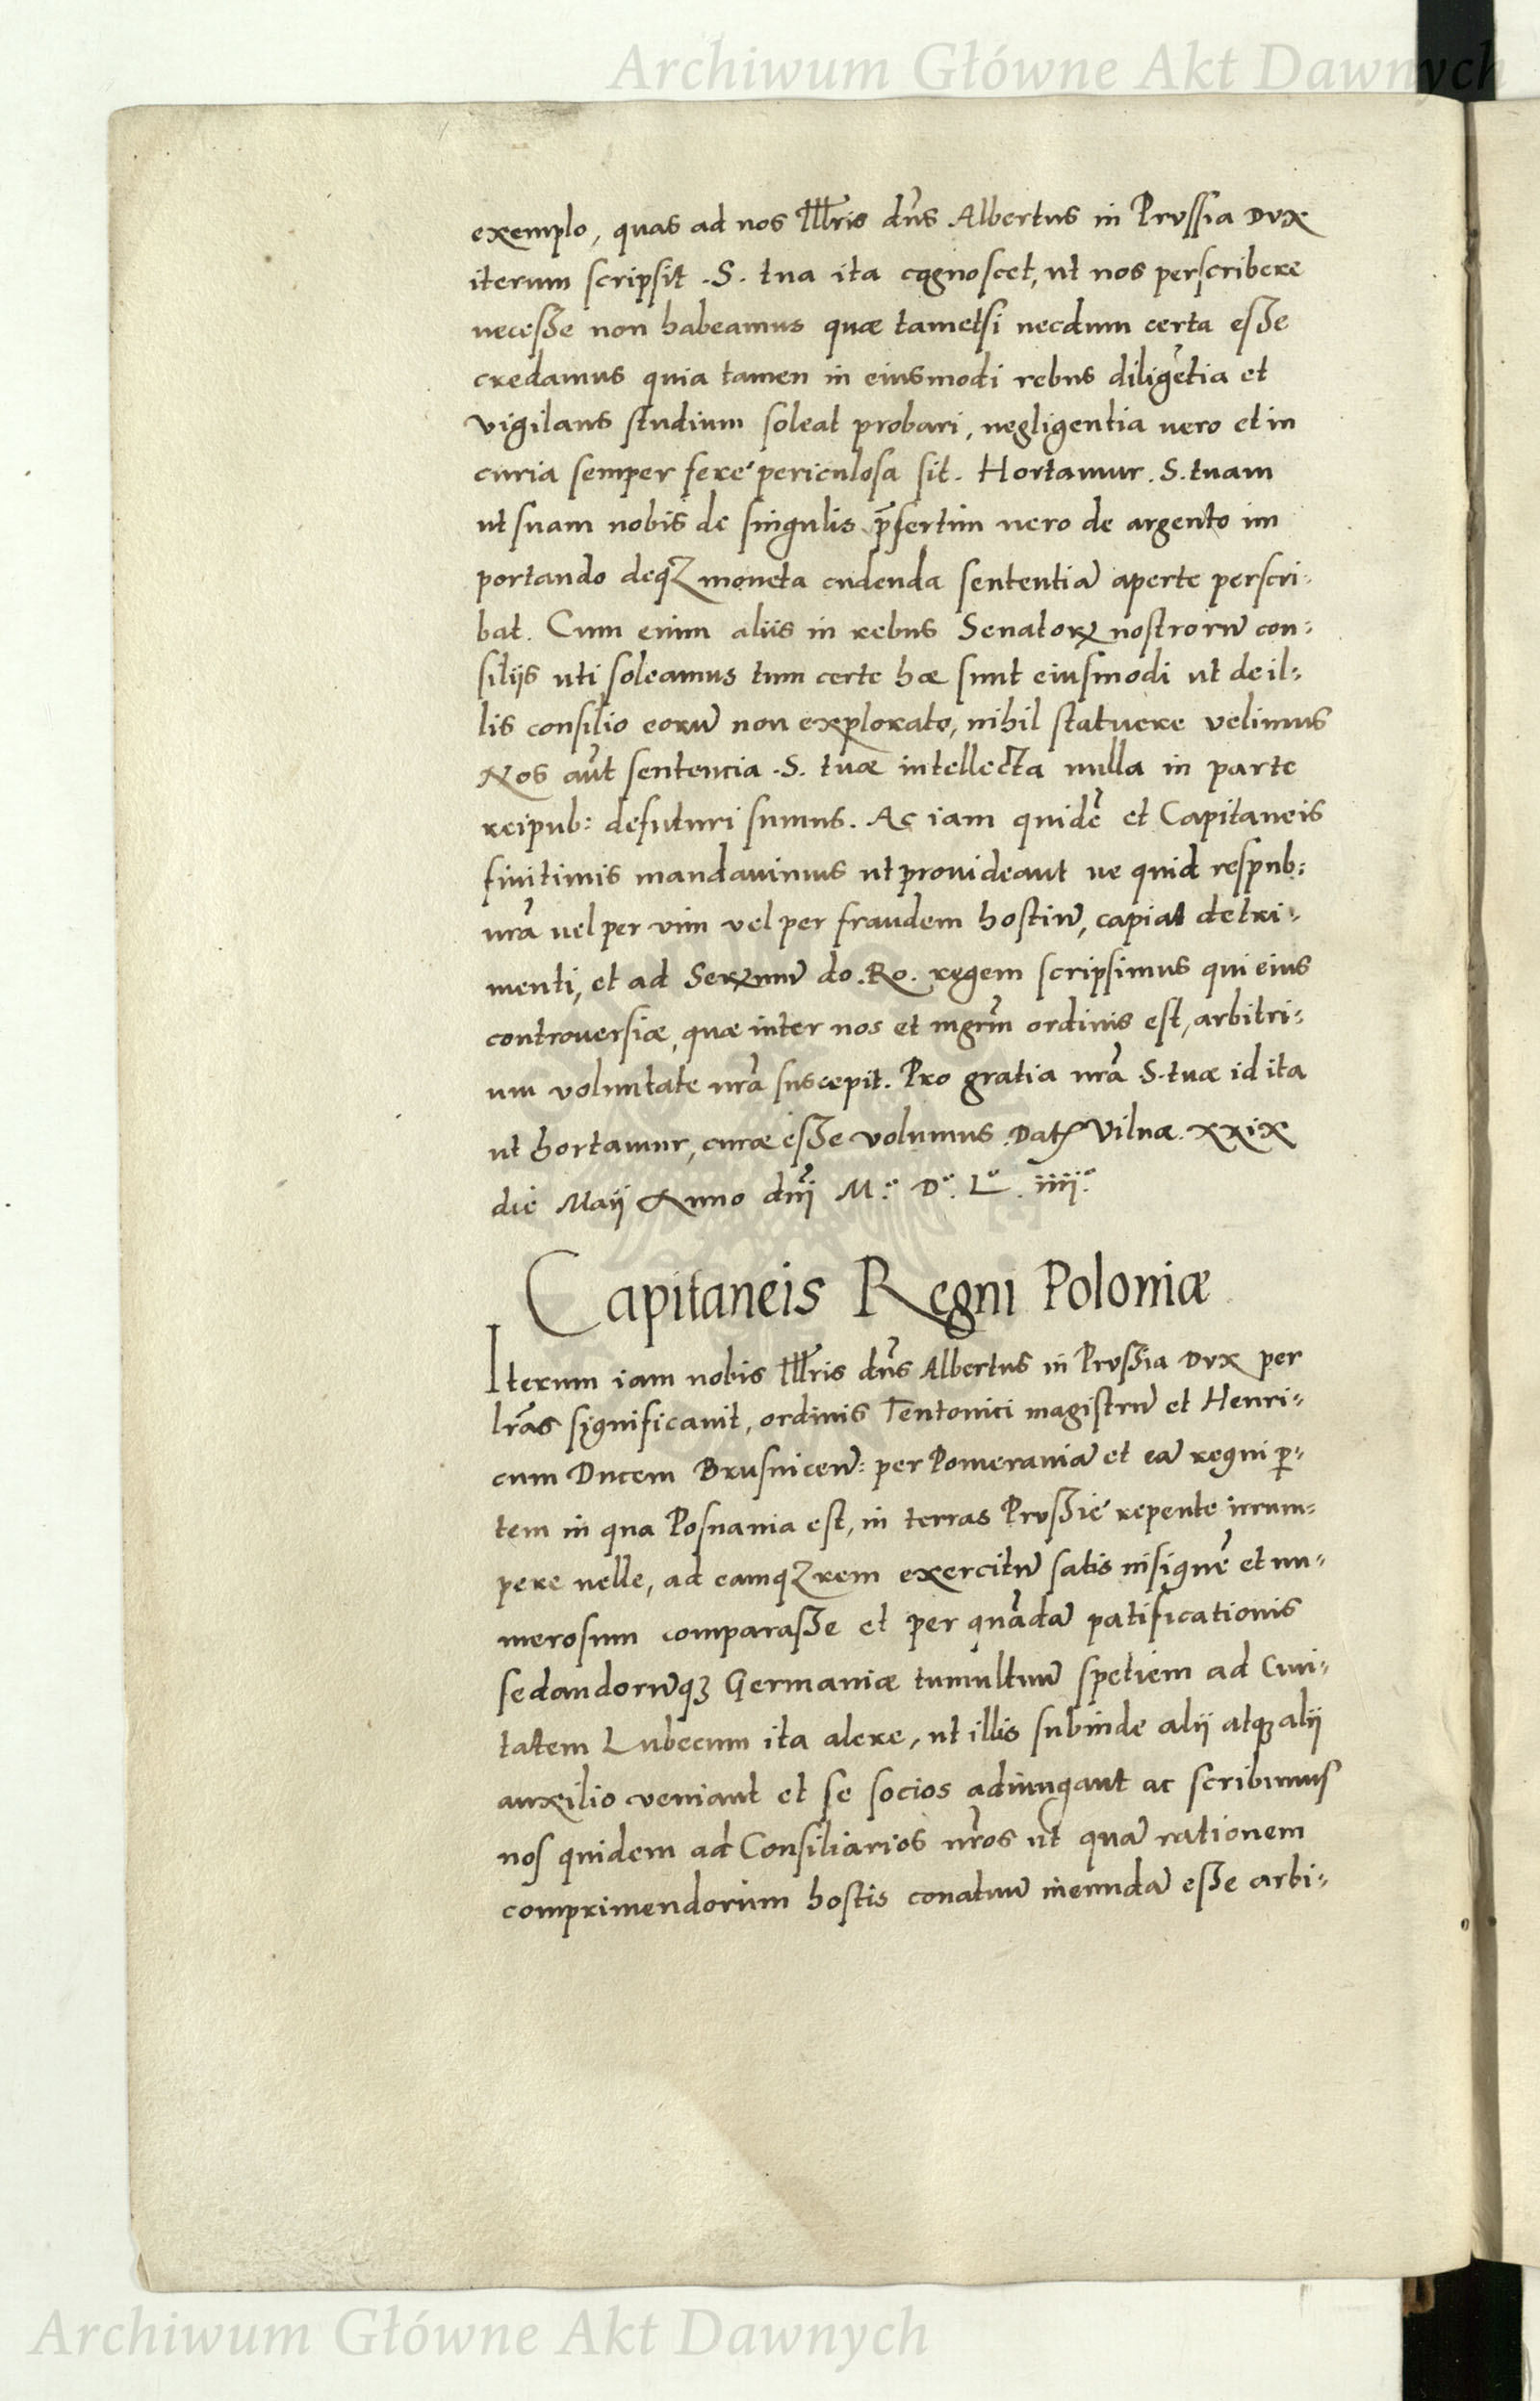 Archiwum Główne Akt Dawnych
exemplo, quas ad nos Illr̃is dñs Albertus in Prussia Dux
iterum scripsit .S. tua ita cognoscet, ut nos perscribere
necesse non habeamus quæ tametsi necdum certa esse
credamus quia tamen in eiusmodi rebus diligẽtia et
vigilans studium soleat probari, negligentia uero et in
curia semper fere' periculosa sit. Hortamur .S. tuam
ut suam nobis de singulis p̃sertim uero de argento im
portando deqꝫ moneta cudenda sententiã aperte perscri-
bat. Cum enim aliis in rebus Senatorꝝ nostrorũ con-
silijs uti soleamus tum certe hæ sunt eiusmodi ut de il-
lis consilio eorũ non explorato, nihil statuere velimus
Nos aũt sentencia .S. tuæ intellecta nulla in parte
reipub: defuturi sumus. Ac iam quidẽ et Capitaneis
finitimis mandauimus ut prouideant ne quid respub:
nrã uel per vim vel per fraudem hostiũ, capiat detri-
menti, et ad Serꝝmũ do. Ro. regem scripsimus qui eius
controuersiæ, quæ inter nos et mgrm̃ ordinis est, arbitri-
um voluntate nrã suscepit. Pro gratia nrã .S. tuæ id ita
ut hortamur, curæ esse volumus. Datꝭ Vilnæ. XXIX
die Maij Anno dñi M.º D.º L.º iiij.º
Capitaneis Regni Poloniæ
Iterum iam nobis Illr̃is dñs Albertus in Prussia Dux per
lrãs significauit, ordinis Teutonici magistrũ et Henri-
cum Ducem Brusnicen̄: per Pomeraniã et eã regni p̲-
tem in qua Posnania est, in terras Prussie' repente irrum-
pere uelle, ad eamqꝫ rem exercitũ satis insignẽ et nu-
merosum comparasse et per quãdã patificationis
sedandorũqꝫ Germaniæ tumultuũ spetiem ad Ciui-
tatem Lubecum ita alere, ut illis subinde alij atqꝫ alij
auxilio veniant et se socios adiungant ac scribimus
nos quidem ad Consiliarios nr̃os ut quã rationem
comprimendorum hostis conatuũ ineundã esse arbi-
Archiwum Główne Akt Dawnych